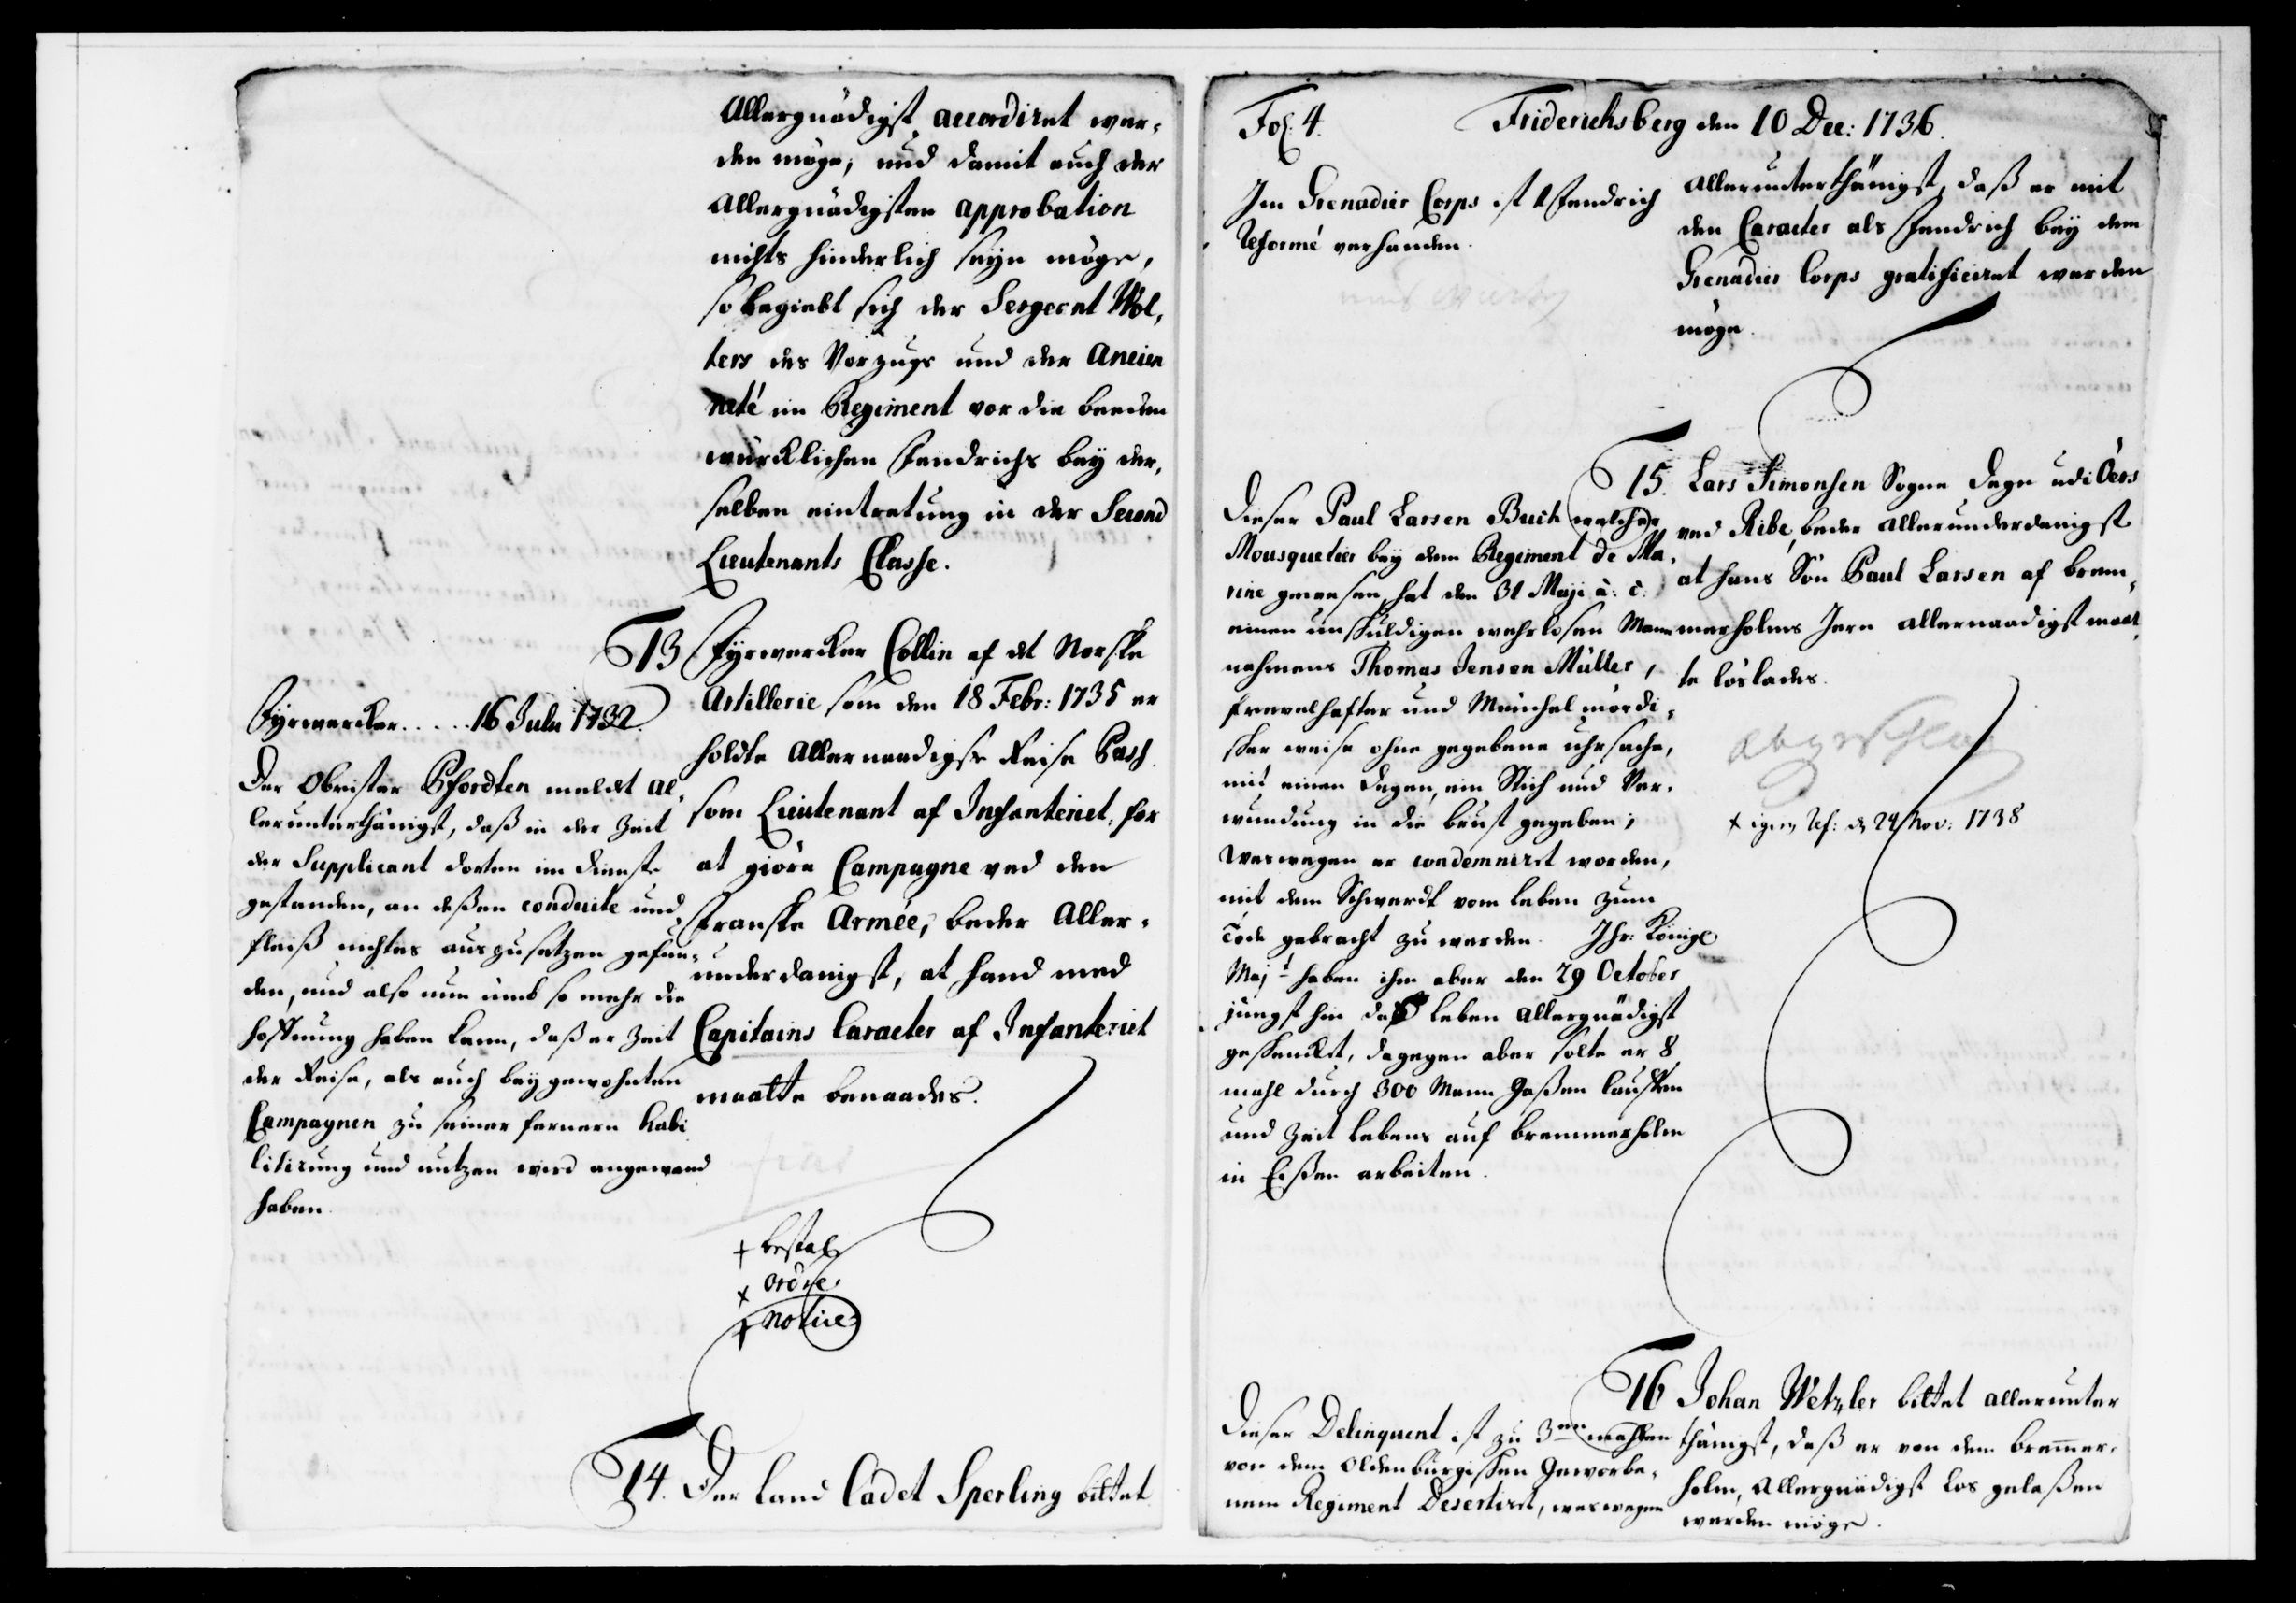 Allergnädigst accordiret wer-
den möge, und damit auch der
Allergnädigsten approbation
nichts hinderlich seyn möge,
so begiebt sich der Sergeant Wol-
ters des Vorzugs und der Ancien
neté im Regiment vor die beeden
würcklichen Fendrichs bey der-
selben eintretung in der Second
Lieutenants Classe.
13 Fyrwercker Collin af det Norske
Artillerie som den 18 Febr: 1735 er
holdte Allernaadigst Reise Pass
som Lieutenant af Infanteriet, for
at giöre Campagne ved den
Franske Armée, beder Aller-
underdanigst, at hand med
Capitains Caracter af Infanteriet
maatte benaades.
Fyrwercker..... 16 July 1732.
Der Obrister Pfordten meldet al-
lerunterthänigst, daß in der Zeit
der Supplicant dorten im dienste
gestanden, an deßen conduite und
fleiß nichtes auszusetzen gefun-
den, und also nun umb so mehr die
hoffnung haben kann, daß er Zeit
der Reise, als auch beygewohnten
Campagnen zu seiner fernern habi
litirung und nutzen wird angewand
haben.
+ bestal
x ordre
+ notice
14. Der Land Cadet Sperling bittet
Fol. 4.
Friderichsberg den 10 Dec: 1736.
Im Grenadier Corps ist 1 Fendrich
Reformé verhanden.
Allerunterthänigst, daß er mit
den Caracter als Fendrich bey dem
Grenadier Corps gratificiret werden
möge.
15. Lars Simonsen Sogne Degn udi Öers
ved Ribe, beder allerunderdanigst
at hans Sön Paul Larsen af brem-
merholms Jern allernaadigst maat-
te löslades.
Dieser Paul Larsen Buch welcher
Mousquetier bey dem Regiment de Ma-
rine gewesen, hat den 31 Maji a: c:
einen unschuldigen wehrlosen Mann
nahmens Thomas Jensen Müller,
frevelhafter und Meuchel mördi-
scher weise ohne gegebene uhrsache,
mit einen Degen, ein Stich und Ver-
wundung in die brust gegeben;
Weswegen er condemniret worden,
mit dem Schwerdt vom leben zum
Tode gebracht zu werden. Ihr: Königl
Majt haben ihm aber den 29 October
jüngst hin daß leben allergnädigst
geschencket, dagegen aber solte er 8
mahl durch 300 Mann Gaßen lauffen
und Zeit lebens auf bremmerholm
in Eisen arbeiten.
abgeschlag
Ref: d 24 Nov: 1738
16 Johan Wetzler bittet allerunter
thänigst, daß er von dem bremmer-
holm, Allergnädigst los gelaßen
werden möge.
Dieser Delinquent ist zu 3en mahlen
von dem Oldenburgischen Geworbe-
nem Regiment Desertiret, weswegen